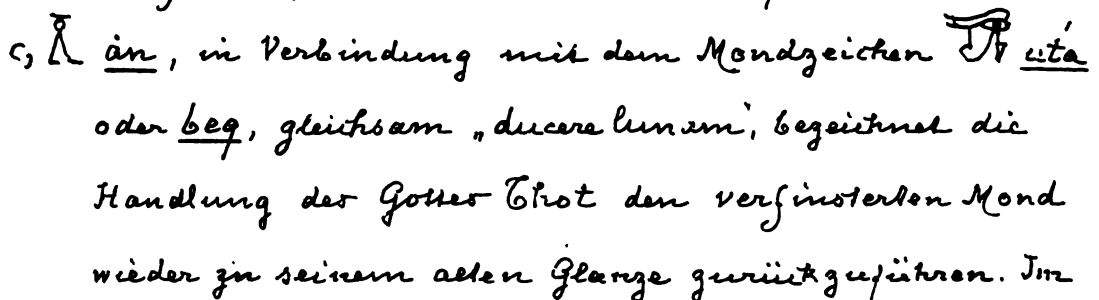 c, 𓏎 án, in Verbindung mit dem Mondzeichen 𓂀 utá
oder beq, gleichsam „ducere lunam", bezeichnet die
Handlung des Gottes Thot den verfinsterten Mond
wieder zu seinem alten Glanze zurückzuführen. Im